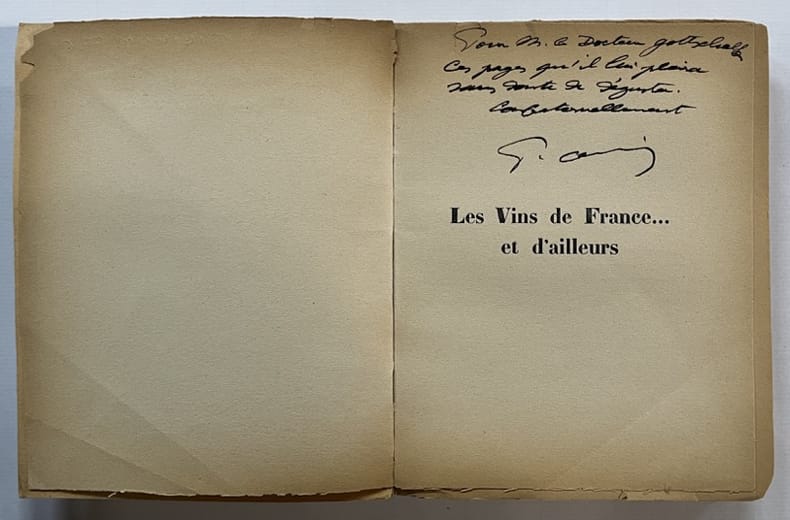 Pour M. le Docteur Gottschalk
ces pages qu'il lui plaira
sans doute de déguster.
Confraternellement
Les Vins de France...
et d'ailleurs